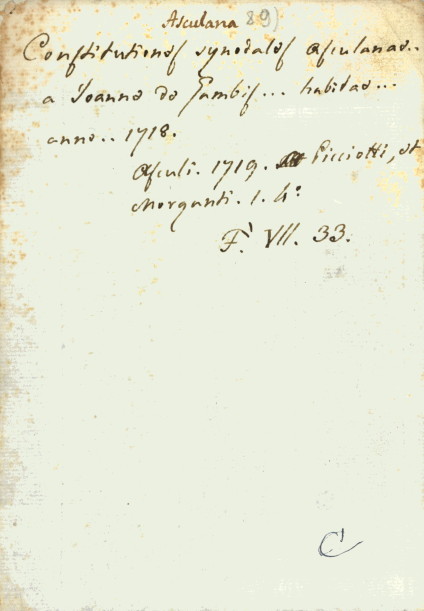 Asculana 89)
Constitutiones synodales Asculanae..
a Joanne de Gambis... habitae...
anno.. 1718.
Asculi. 1719. Picciotti, et
Morganti. 1. 4°
F. VII. 33.
C